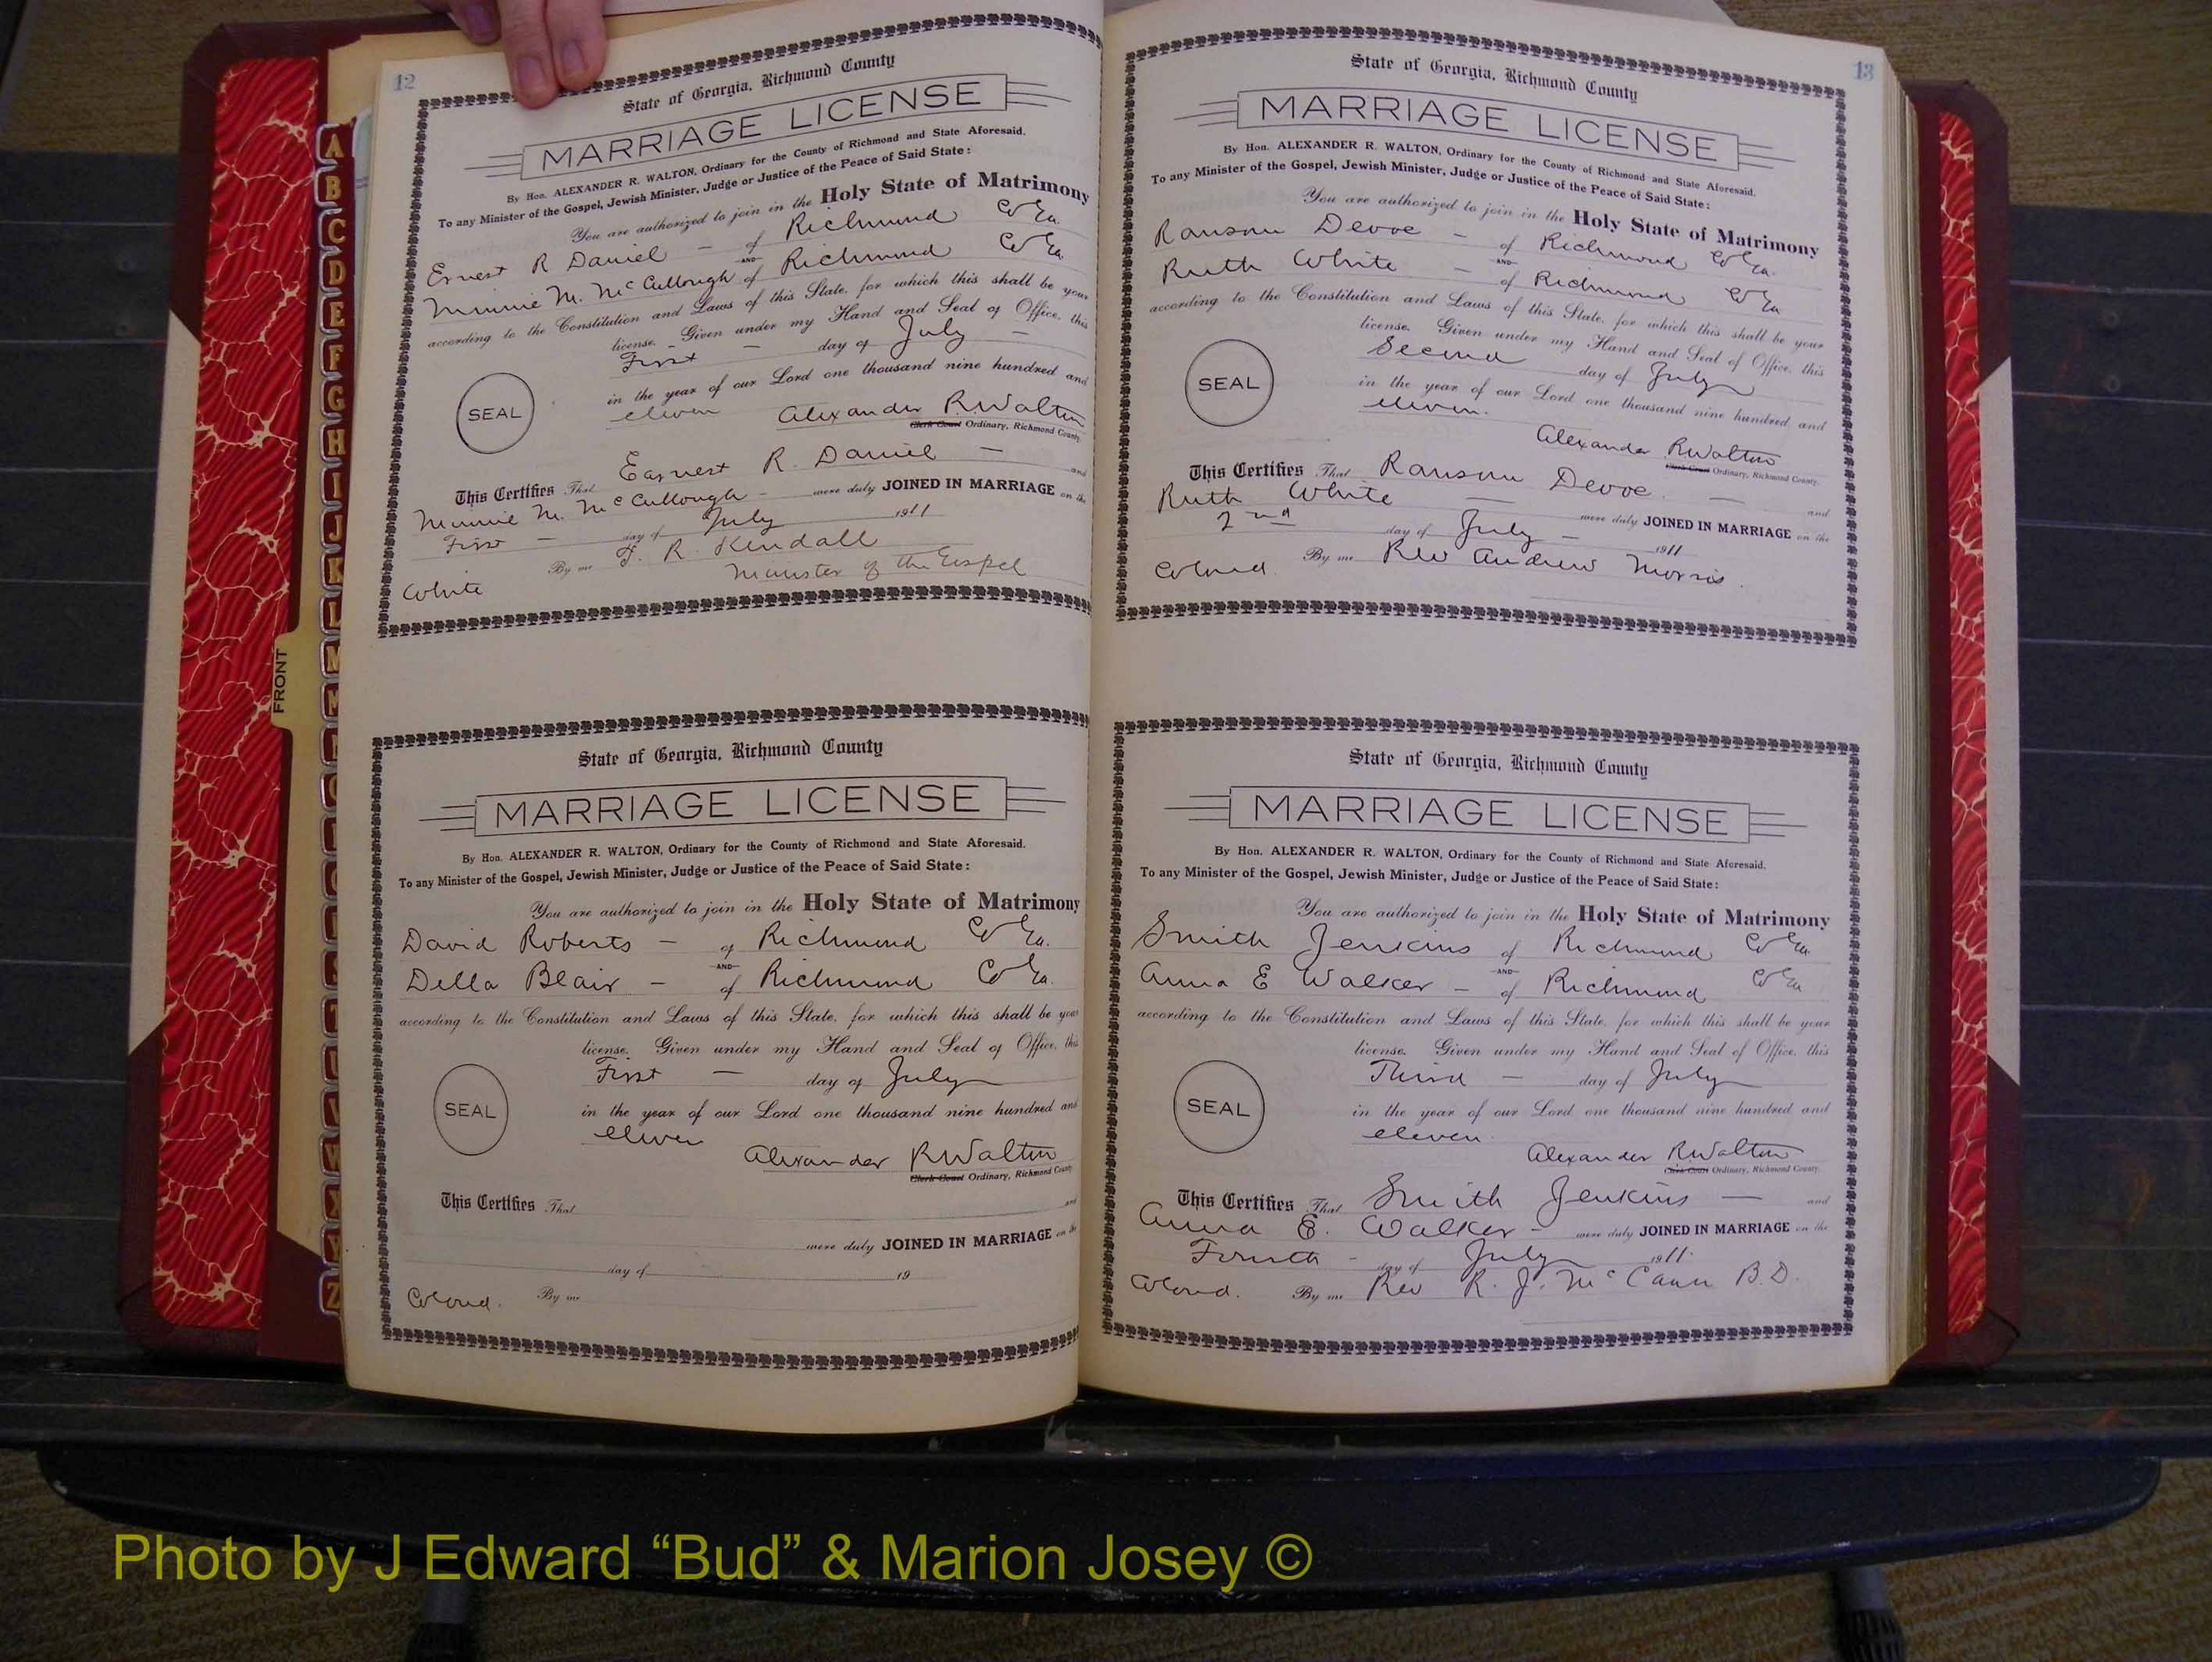 12
State of Georgia, Richmond County
MARRIAGE LICENSE
By Hon. ALEXANDER R. WALTON, Ordinary for the County of Richmond and State Aforesaid.
To any Minister of the Gospel, Jewish Minister, Judge or Justice of the Peace of Said State:
You are authorized to join in the Holy State of Matrimony
Ernest R Daniel - of Richmond Co Ga.
AND
Minnie M. McCullough of Richmond Co Ga.
according to the Constitution and Laws of this State, for which this shall be your
license. Given under my Hand and Seal of Office, this
First - day of July -
SEAL
in the year of our Lord one thousand nine hundred and
eleven Alexander R Walton
Clerk Court Ordinary, Richmond County
This Certifies That Earnest R. Daniel - and
Minnie M. McCullough - were duly JOINED IN MARRIAGE on the
First - day of July 1911
By me T. R. Kendall
Minister of the Gospel
White
State of Georgia, Richmond County
MARRIAGE LICENSE
By Hon. ALEXANDER R. WALTON, Ordinary for the County of Richmond and State Aforesaid.
To any Minister of the Gospel, Jewish Minister, Judge or Justice of the Peace of Said State:
You are authorized to join in the Holy State of Matrimony
David Roberts - of Richmond Co Ga.
AND
Della Blair - of Richmond Co Ga.
according to the Constitution and Laws of this State, for which this shall be your
license. Given under my Hand and Seal of Office, this
First - day of July
SEAL
in the year of our Lord one thousand nine hundred and
eleven
Alexander R Walton
Clerk Court Ordinary, Richmond County
This Certifies That and
were duly JOINED IN MARRIAGE on the
day of 19
Colored. By me
13
State of Georgia, Richmond County
MARRIAGE LICENSE
By Hon. ALEXANDER R. WALTON, Ordinary for the County of Richmond and State Aforesaid.
To any Minister of the Gospel, Jewish Minister, Judge or Justice of the Peace of Said State:
You are authorized to join in the Holy State of Matrimony
Ransom Devoe - of Richmond Co Ga.
AND
Ruth White - of Richmond Co Ga
according to the Constitution and Laws of this State, for which this shall be your
license. Given under my Hand and Seal of Office, this
Second day of July
SEAL
in the year of our Lord one thousand nine hundred and
eleven.
Alexander R Walton
Clerk Court Ordinary, Richmond County.
This Certifies That Ransom Devoe. - and
Ruth White - were duly JOINED IN MARRIAGE on the
2nd day of July - 1911
Colored. By me Rev Andrew Morris.
State of Georgia, Richmond County
MARRIAGE LICENSE
By Hon. ALEXANDER R. WALTON, Ordinary for the County of Richmond and State Aforesaid.
To any Minister of the Gospel, Jewish Minister, Judge or Justice of the Peace of Said State:
You are authorized to join in the Holy State of Matrimony
Smith Jenkins of Richmond Co Ga.
AND
Anna E Walker - of Richmond Co Ga
according to the Constitution and Laws of this State, for which this shall be your
license. Given under my Hand and Seal of Office, this
Third - day of July
SEAL
in the year of our Lord one thousand nine hundred and
eleven.
Alexander R Walton
Clerk Court Ordinary, Richmond County.
This Certifies That Smith Jenkins - and
Anna E. Walker - were duly JOINED IN MARRIAGE on the
Fourth - day of July 1911.
Colored. By me Rev R. J. McCann B.D.
A
B
C
D
E
F
G
H
I
J
K
L
M
FRONT
Z
Photo by J Edward “Bud” & Marion Josey ©